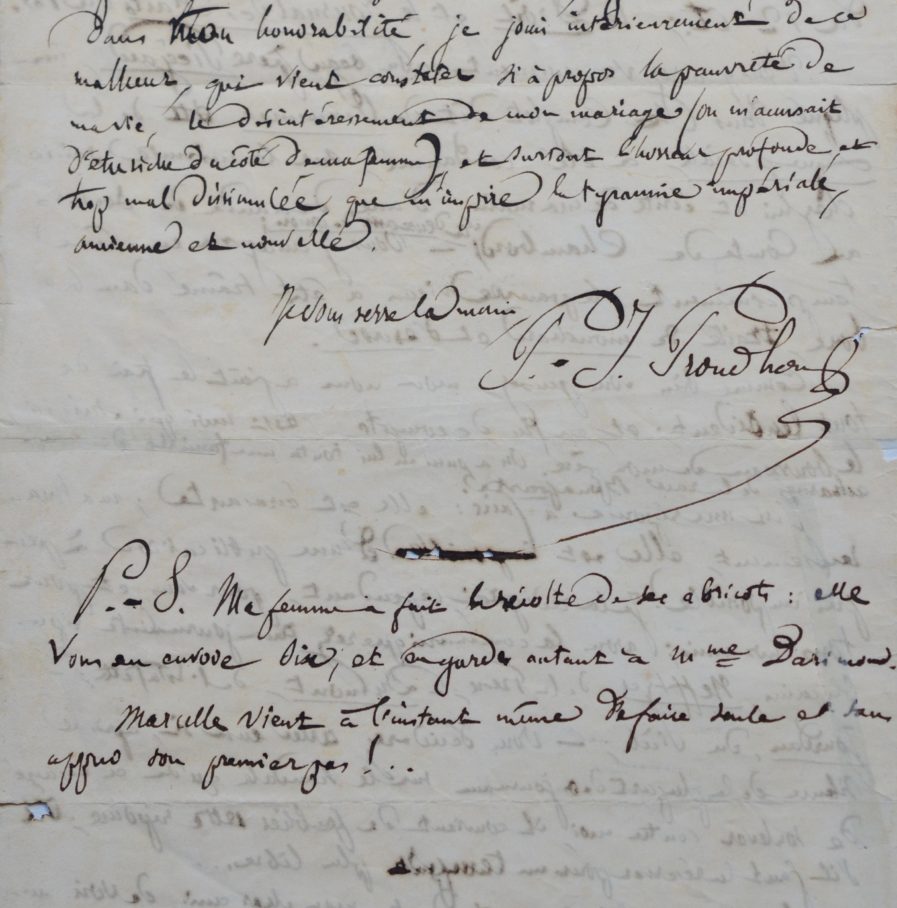 dans mon honorabilité, je jouis intérieurement de ce
malheur, qui vient constater si à propos la pauvreté de
ma vie, le désintéressement de mon mariage (on m'accusait
d'être riche du côté de ma femme), et surtout l'horreur profonde, et
trop mal dissimulée, que m'inspire la tyrannie impériale,
ancienne et nouvelle.
Je vous serre la main,
P.-J. Proudhon
P.-S. Ma femme a fait la récolte de ses abricots : elle
vous en envoie dix, et en garde autant à Mme Darimond.
Marcelle vient à l'instant même de faire seule et sans
appui son premier pas !...